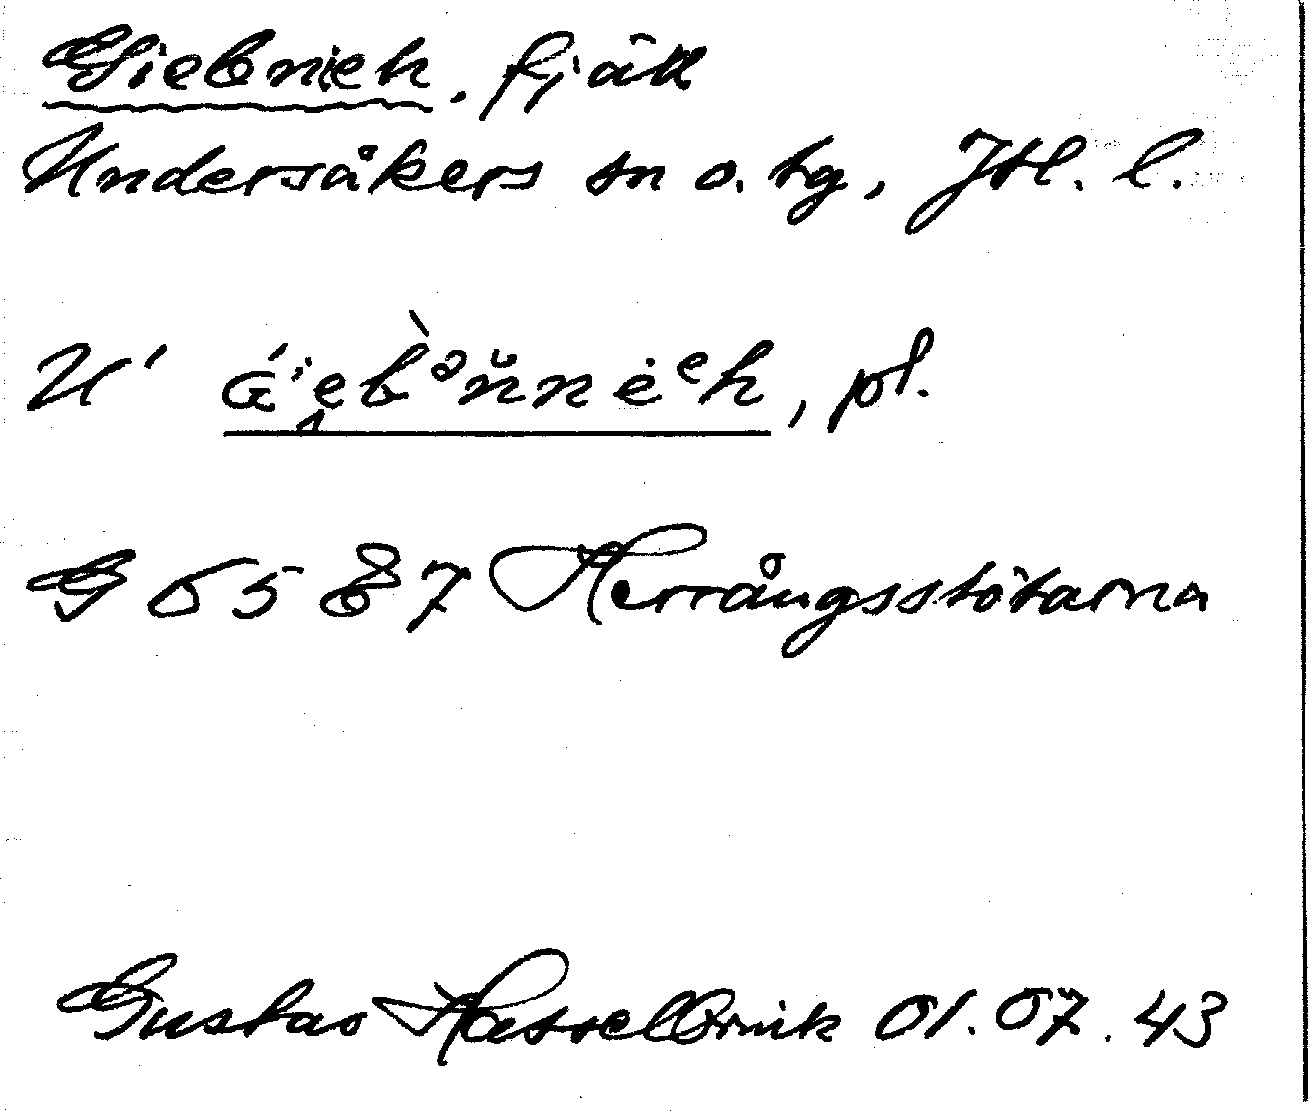 Giebnieh, fjäll
Undersåkers sn o. tg, Jtl. l.
U'
, pl.
G 65 E 7 Herrångsstötarna
Gustav Hasselbrink 01.07.43